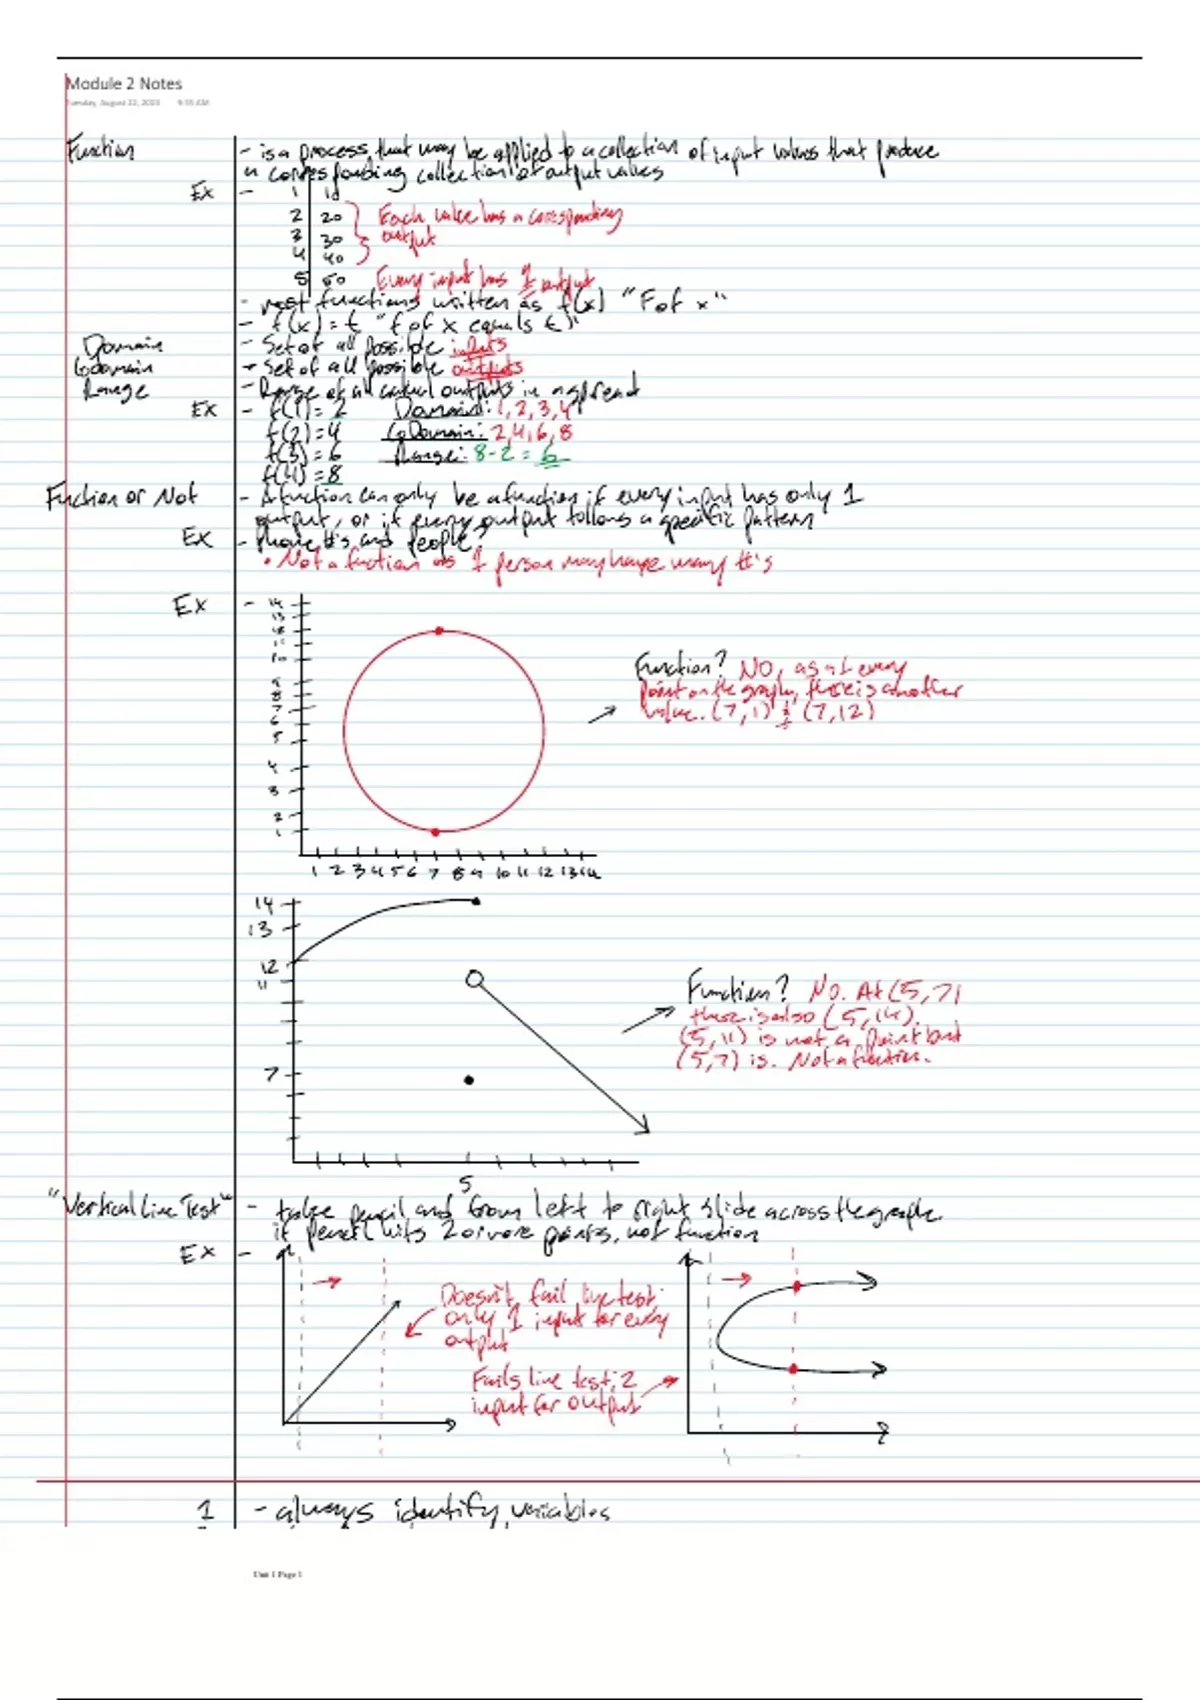 Module 2 Notes
Tuesday, August 22, 2023 9:35 AM
Function - is a process that may be applied to a collection of input values that produce
a corresponding collection of output values
Ex - 1 10
2 20 Each value has a corresponding
3 30 output
4 40
5 50 Every input has 1 output
- most functions written as f(x) "F of x"
- f(x) = t "f of x equals t"
Domain - Set of all possible inputs
Codomain - Set of all possible outputs
Range - Range of all actual outputs in a spread
Ex - f(1) = 2 Domain: 1, 2, 3, 4
f(2) = 4 CoDomain: 2, 4, 6, 8
f(3) = 6 Range: 8-2 = 6
f(4) = 8
Function or Not - A function can only be a function if every input has only 1
output, or if every output follows a specific pattern
Ex - Phone #'s and people?
• Not a function as 1 person may have many #'s
Ex - 14
13
12
11
10
9
8
7
6
5
4
3
2
1
Function? NO, as at every
point on the graph, there is another
value. (7,1) & (7,12)
1 2 3 4 5 6 7 8 9 10 11 12 13 14
14
13
12
11
7
5
Function? No. At (5,7)
there is also (5,14).
(5,11) is not a point but
(5,7) is. Not a function.
"Vertical Line Test" - take pencil and from left to right slide across the graph
if pencil hits 2 or more points, not function
Ex -
Doesn't fail line test;
only 1 input for every
output
Fails line test; 2
input for output
1 - always identify variables
Unit 1 Page 1